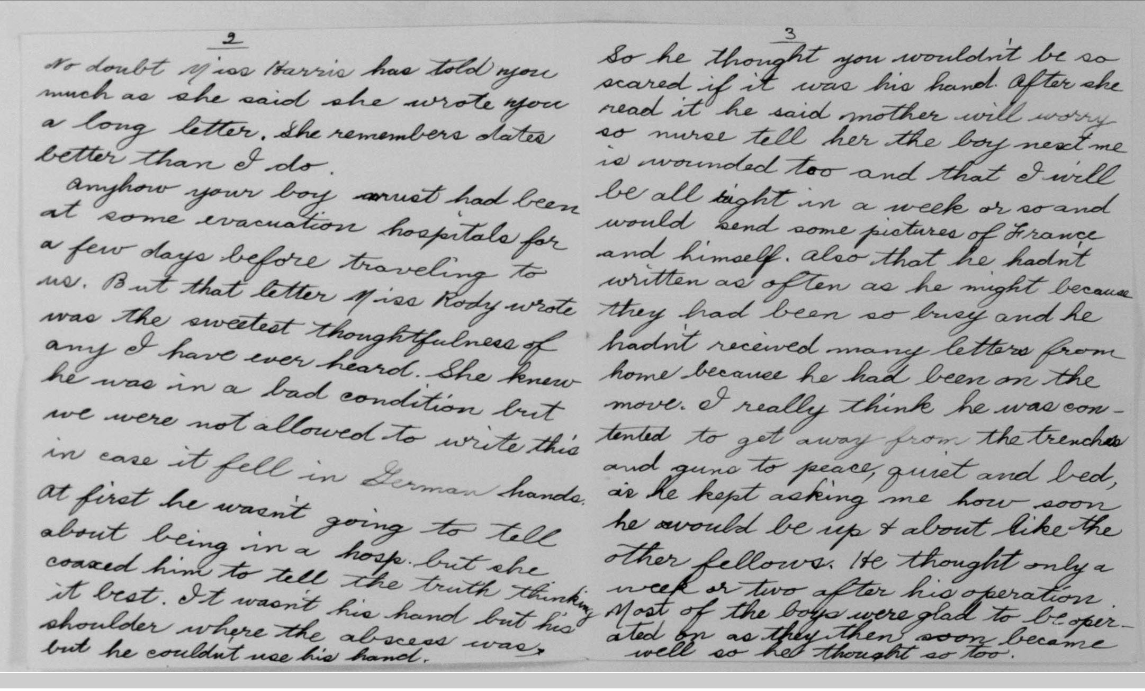 2
No doubt Miss Harris has told you
much as she said she wrote you
a long letter. She remembers dates
better than I do.
Anyhow your boy must had been
at some evacuation hospitals for
a few days before traveling to
us. But that letter Miss Kody wrote
was the sweetest thoughtfulness of
any I have ever heard. She knew
he was in a bad condition but
we were not allowed to write this
in case it fell in German hands.
At first he wasn't going to tell
about being in a hosp. but she
coaxed him to tell the truth thinking
it best. It wasn't his hand but his
shoulder where the abscess was,
but he couldn't use his hand.
3
So he thought you wouldn't be so
scared if it was his hand. After she
read it he said mother will worry
so nurse tell her the boy next me
is wounded too and that I will
be all right in a week or so and
would send some pictures of France
and himself. Also that he hadn't
written as often as he might because
they had been so busy and he
hadn't received many letters from
home because he had been on the
move. I really think he was con-
tented to get away from the trenches
and guns to peace, quiet and bed,
as he kept asking me how soon
he would be up & about like the
other fellows. He thought only a
week or two after his operation.
Most of the boys were glad to be oper-
ated on as they then soon became
well so he thought so too.